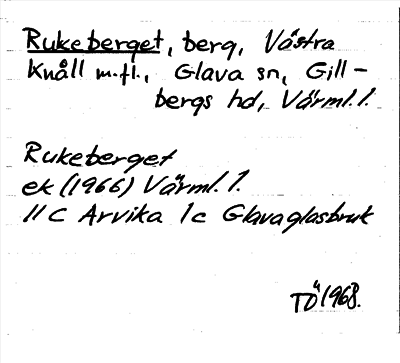 Rukeberget, berg, Västra
Knåll m.fl., Glava sn, Gill-
bergs hd, Värml. l.
Rukeberget
ek (1966) Värml. l.
11 C Arvika 1c Glavaglasbruk
TÖ 1968.